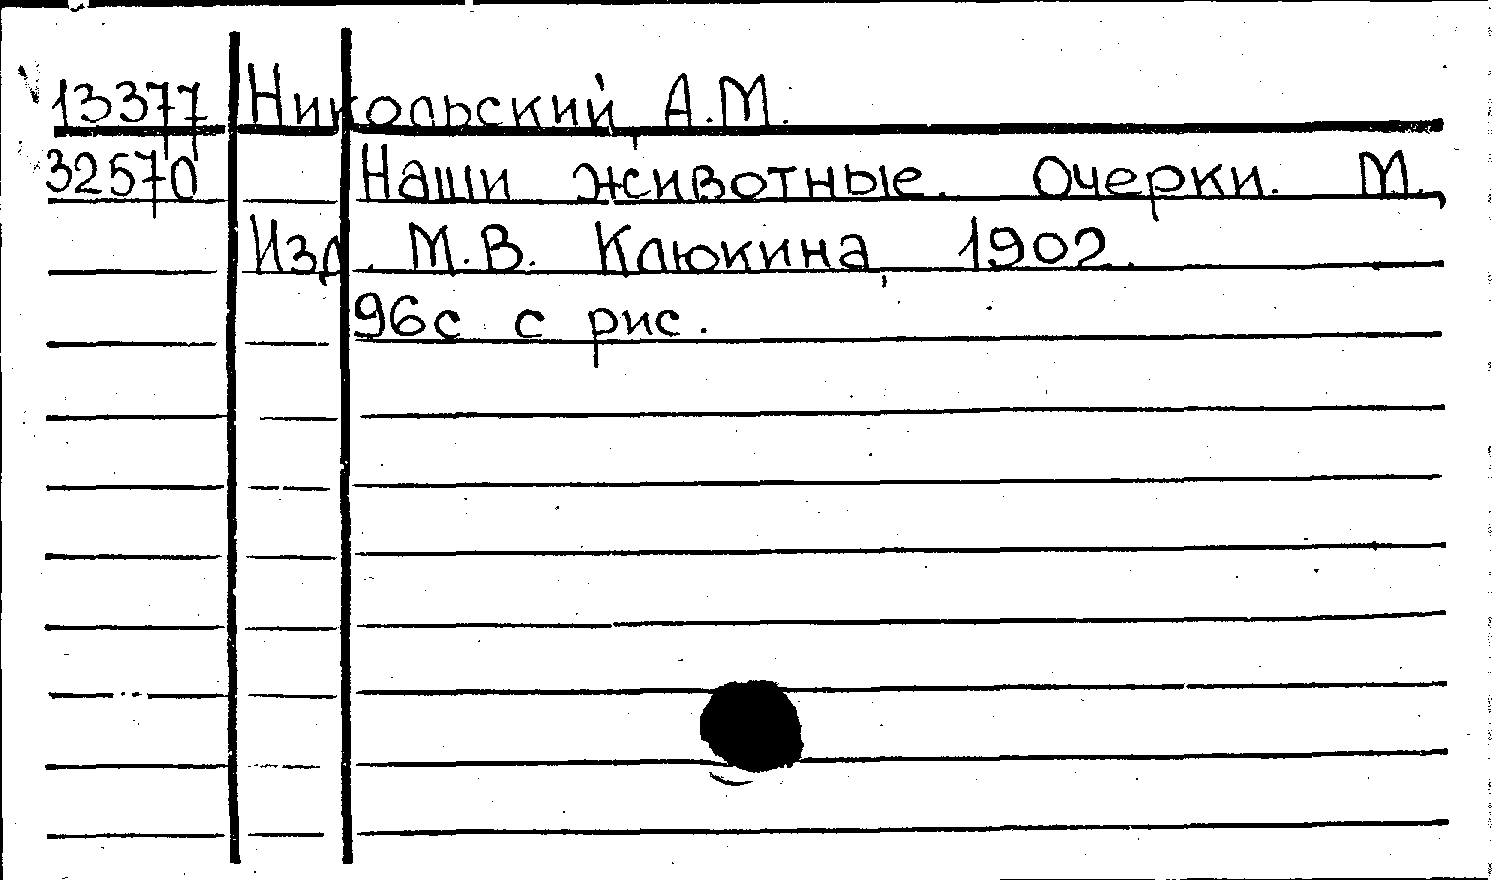 13377 Никольский, А.М.
32570 Наши животные. Очерки. М.,
Изд. М.В. Клюкина, 1902.
96с с рис.